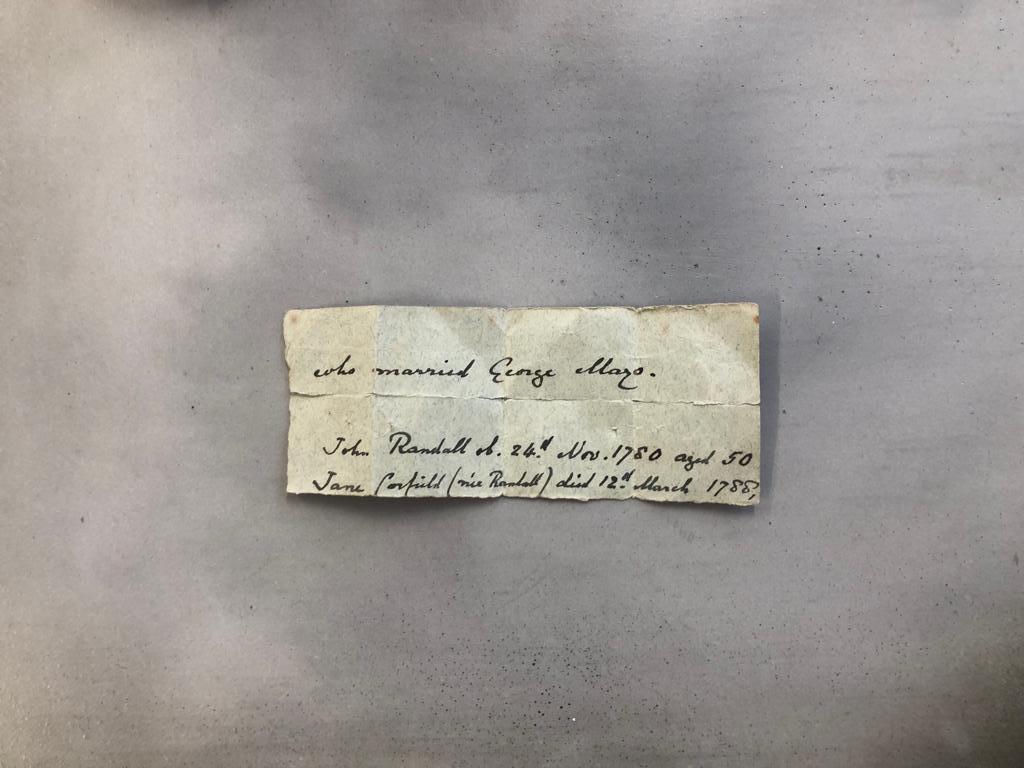 who married George Mayo.
John Randall ob. 24.d Nov. 1780 aged 50
Jane Corfield (née Randall) died 12.d March 1788,